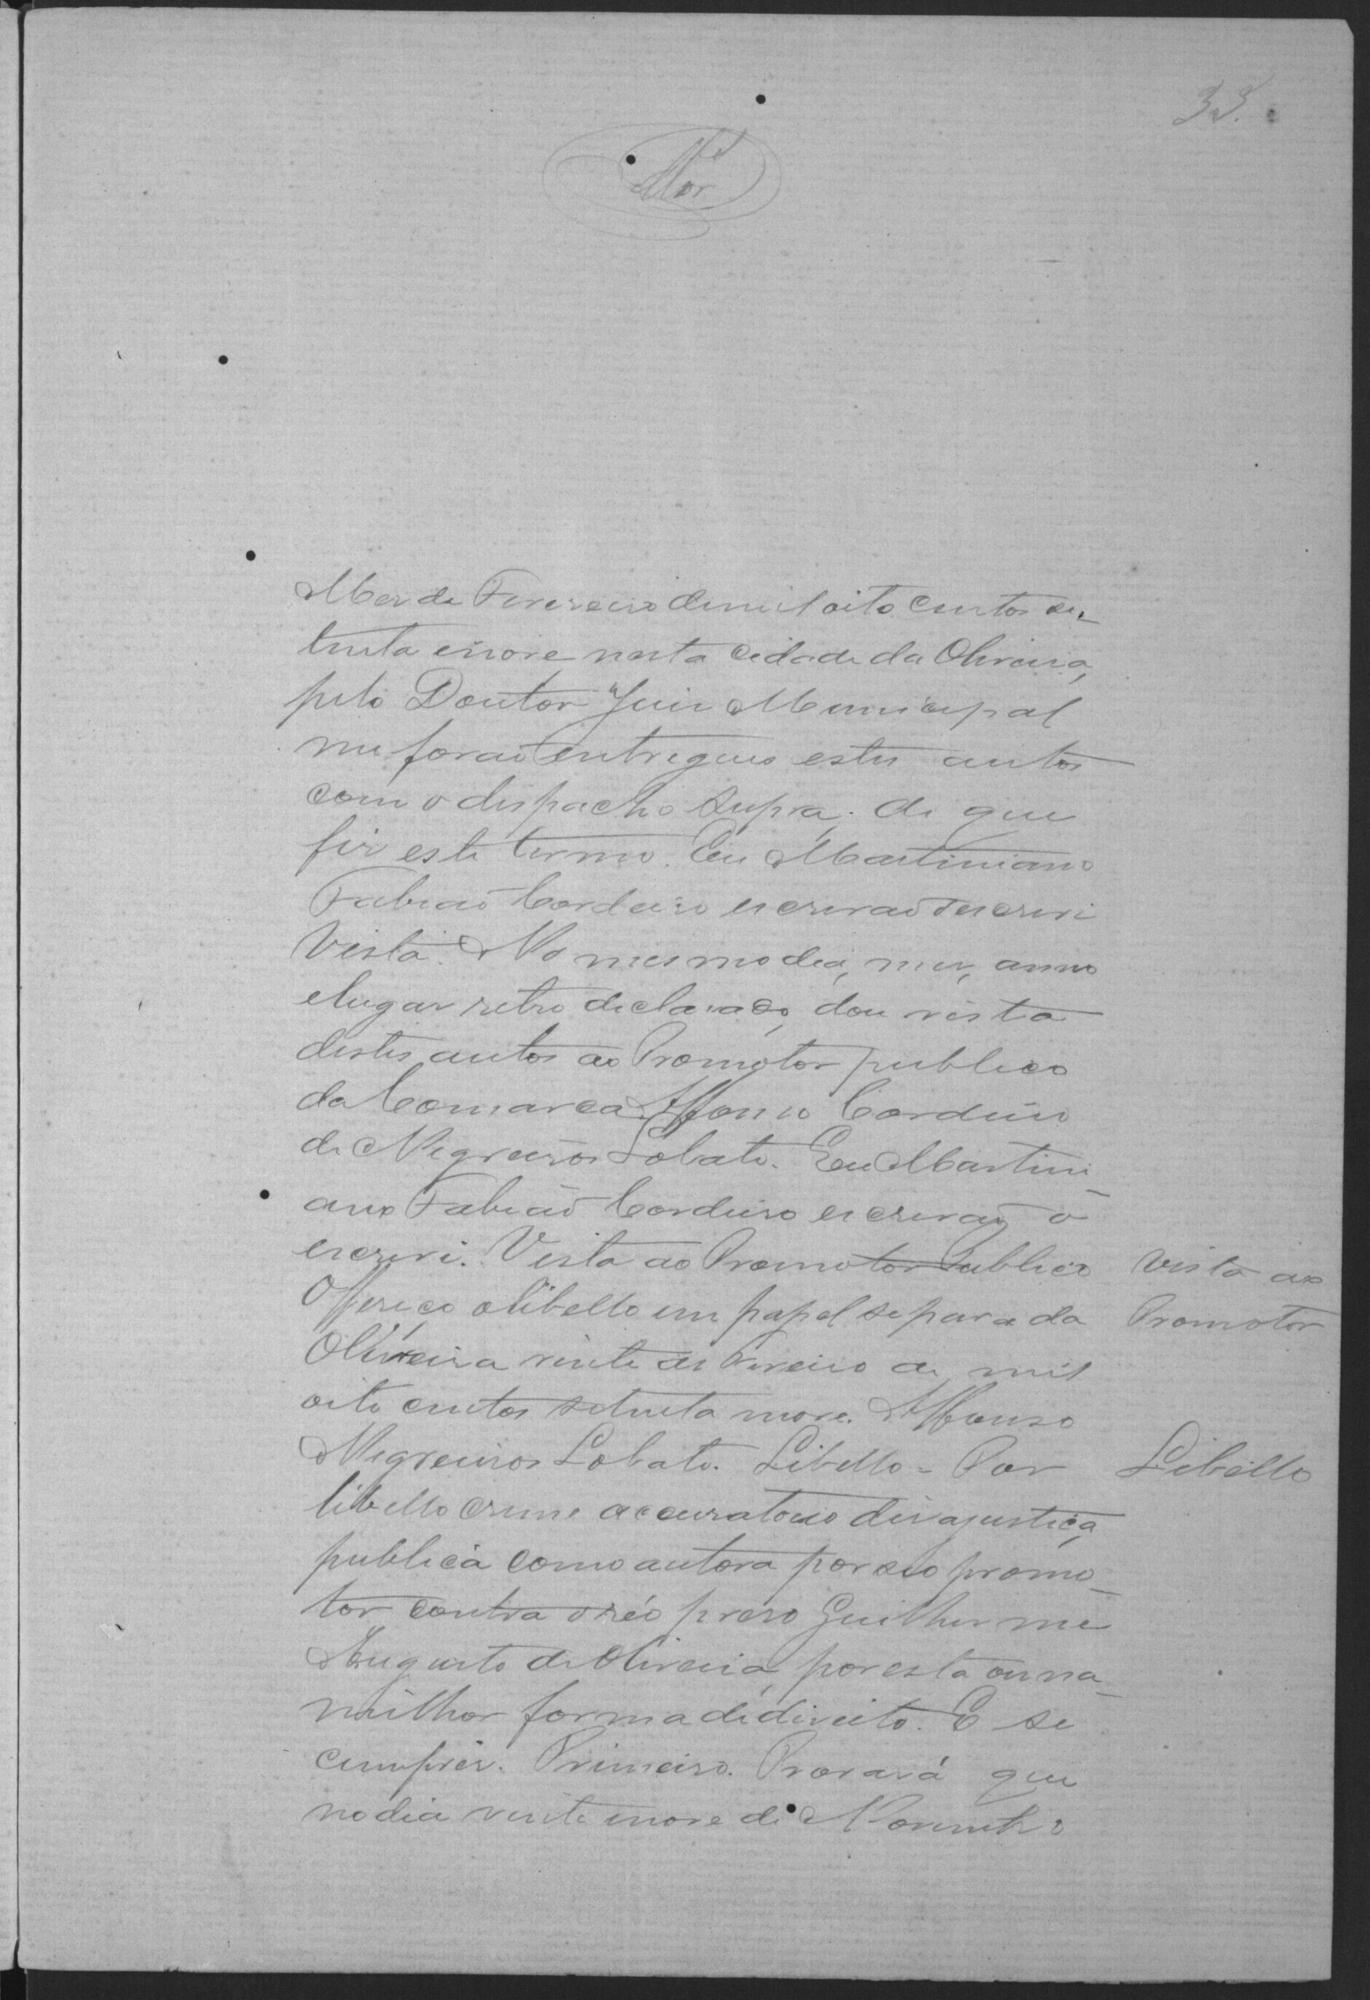 33.
Mor
Mes de Fevereiro de mil oito centos se_
tenta e nove nesta cidade da Oliveira,
pelo Doutor Juiz Municipal
me forão entregues estes autos
com o dispacho supra. de que
fiz este termo. Eu Martiniano
Fabião Cordeiro escrivão o escrevi
Vista. No mesmo dia, mez, anno
e lugar retro declarado, dou vista
destes autos ao Promotor publico
da Comarca Affonso Cordeiro
de Negreiros Lobato. Eu Martini_
ano Fabião Cordeiro escrivão o
escrevi. Vista ao Promotor Publico
Vista ao
Offereço o libello em papel separado
Promotor
Oliveira vinte de Fevereiro de mil
oito centos setenta nove. Affonso
Negreiros Lobato. Libello = Por
Libello
libello crime accusatorio diz a justiça
publica como autora por seo promo_
tor contra o réo preso Guilherme
Augusto de Oliveira, por esta ou na_
milhor forma de direito. E se
cumprir. Primeiro. Provará que
no dia vinte e nove de Novembro